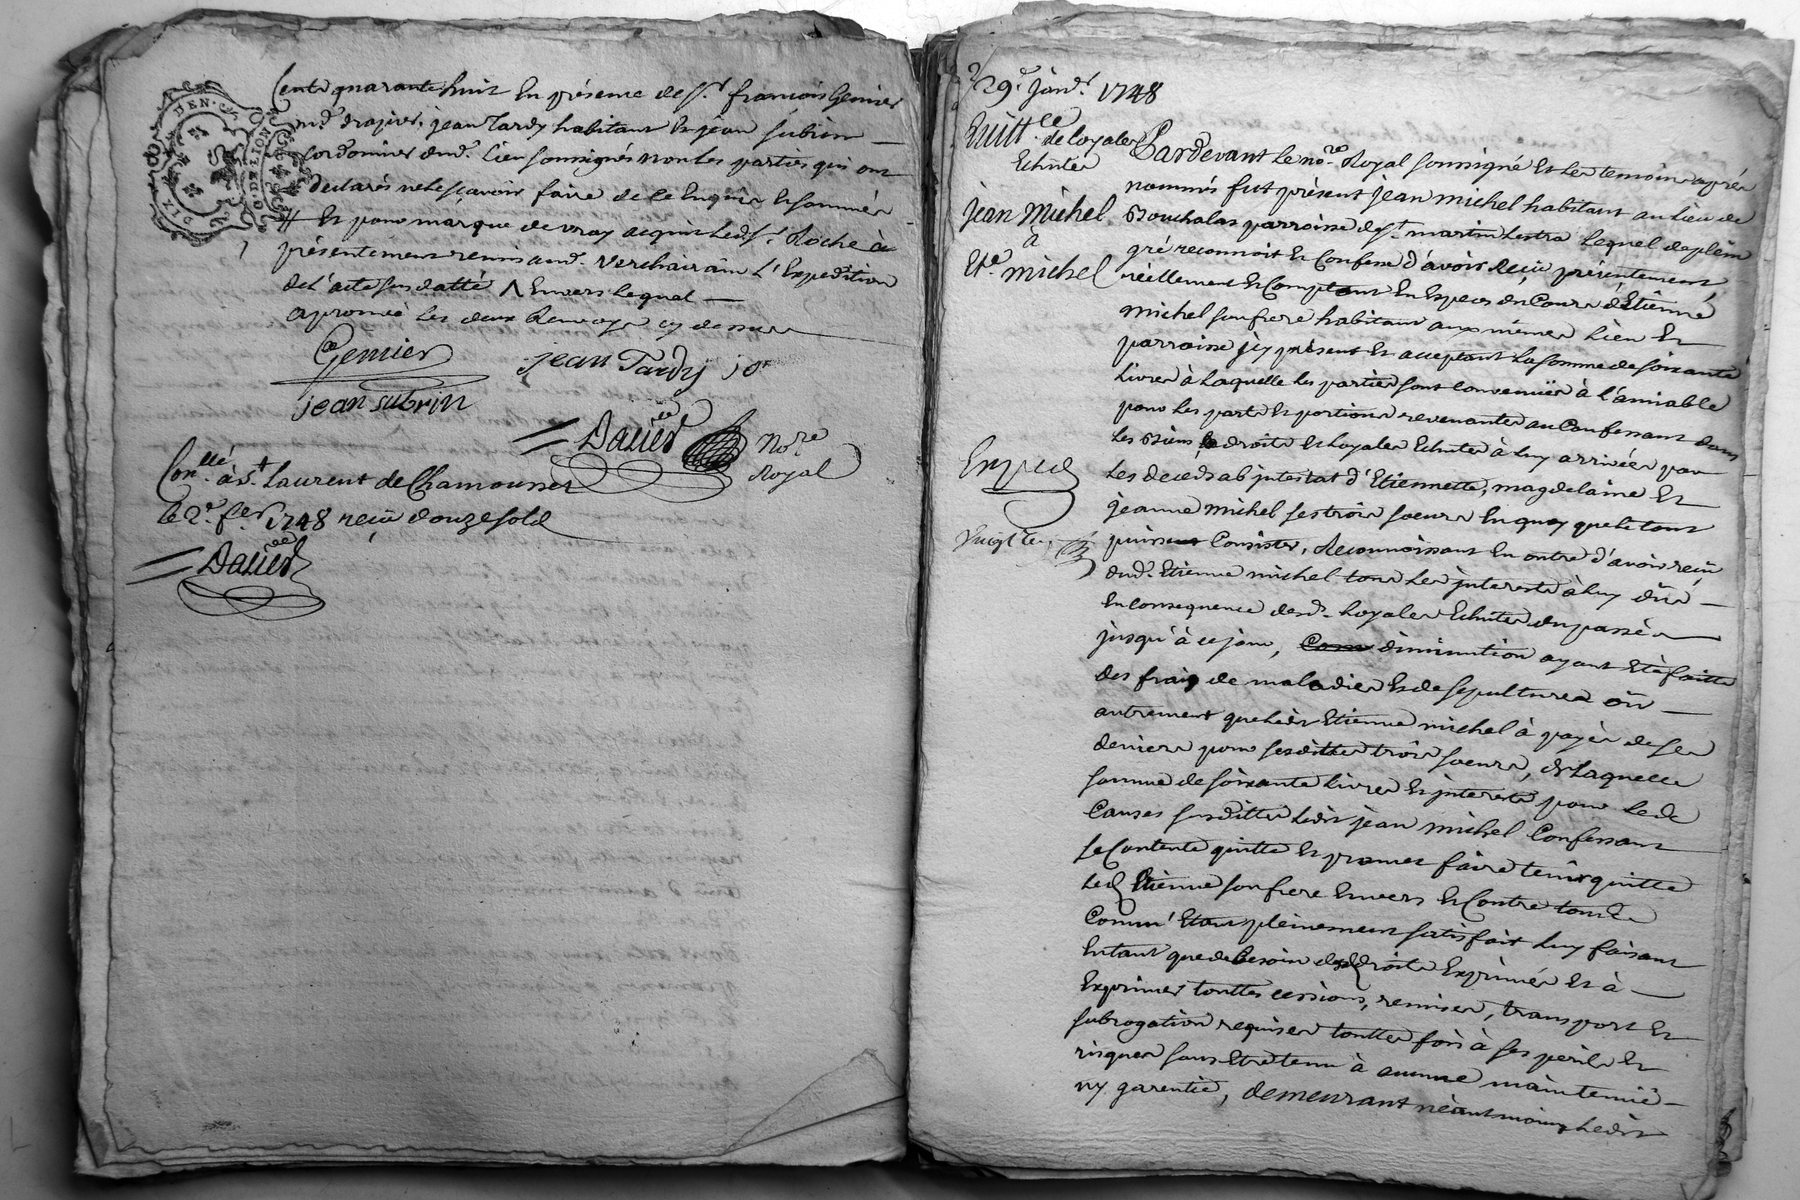 Cents quarante huit En présence de Sr. françois Gemier
md. drapier, jean Tardy habitant Et jean subrin
Cordonnier dud. Lieu soussignés non Les parties qui ont
declarés ne le sçavoir faire de ce Enquis Et sommés
# Et pour marque de vray acquit Ledt. Sr. Roche à
présentement remis aud. Verchairain L'Expedition
de L'acte susdatté Λ Envers Lequel
aprouvé Les deux Renvoys cy dessus
Gemier
jean Tardy
jean subrin
Dalier Nore Royal
Conllé. à St Laurent de Chamousset
le 2e. fer. 1748 reçu douze sols
Dalier
GEN. DE LION
DIX DEN.
29e janr. 1748
Quittce de loyales
Echutes
jean Michel
à
Ete. michel
Exped
Pardevant Le nore. Royal soussigné Et Les temoins aprés
nommés fut présent jean michel habitant au Lieu de
Bouchalas parroisse de St. martin Lestra Lequel de plein
gré reconnoit Et Confesse d'avoir Reçû présentement,
réellement Et Comptant En Especes du Cours d'Etienne
michel son frere habitant aux mêmes Lieu Et
parroisse jcy présent Et acceptant La somme de soixante
Livres à Laquelle Les parties sont Convenües à L'amiable
pour Les parts Et portions revenantes au Confessant dans
Les Biens droits Et Loyales Echutes à Luy arrivées par
Les deceds ab jntestat d'Etiennette, magdelaine Et
jeanne michel ses trois soeurs En quoy que le tout
puissent Consister, Reconnoissant En outre d'avoir reçu
dud. Etienne michel tous Les jnterests à Luy dûs
En Consequence desd. Loyales Echutes du passé
jusqu'à ce jour, diminution ayant Eté faitte
des frais de maladies Et de sepultures ou
autrement que Ledt Etienne michel à payés de ses
deniers pour sesdittes trois soeurs, de Laquelle
somme de soixante Livres Et jnterests pour Les
Causes susdittes Ledt jean michel Confessant
se Contente quitte Et promet faire tenir quitte
Led Etienne son frere Envers Et Contre tous
Comm' Etant pleinement satisfait Luy faisant
En tant que de besoin desd droits Exprimés Et à
Exprimer touttes cessions, remises, transport Et
subrogation requises touttes fois à ses perils Et
risques sans Etre tenu à aucune maintenüe
ny garentie, demeurant néantmoins Ledit